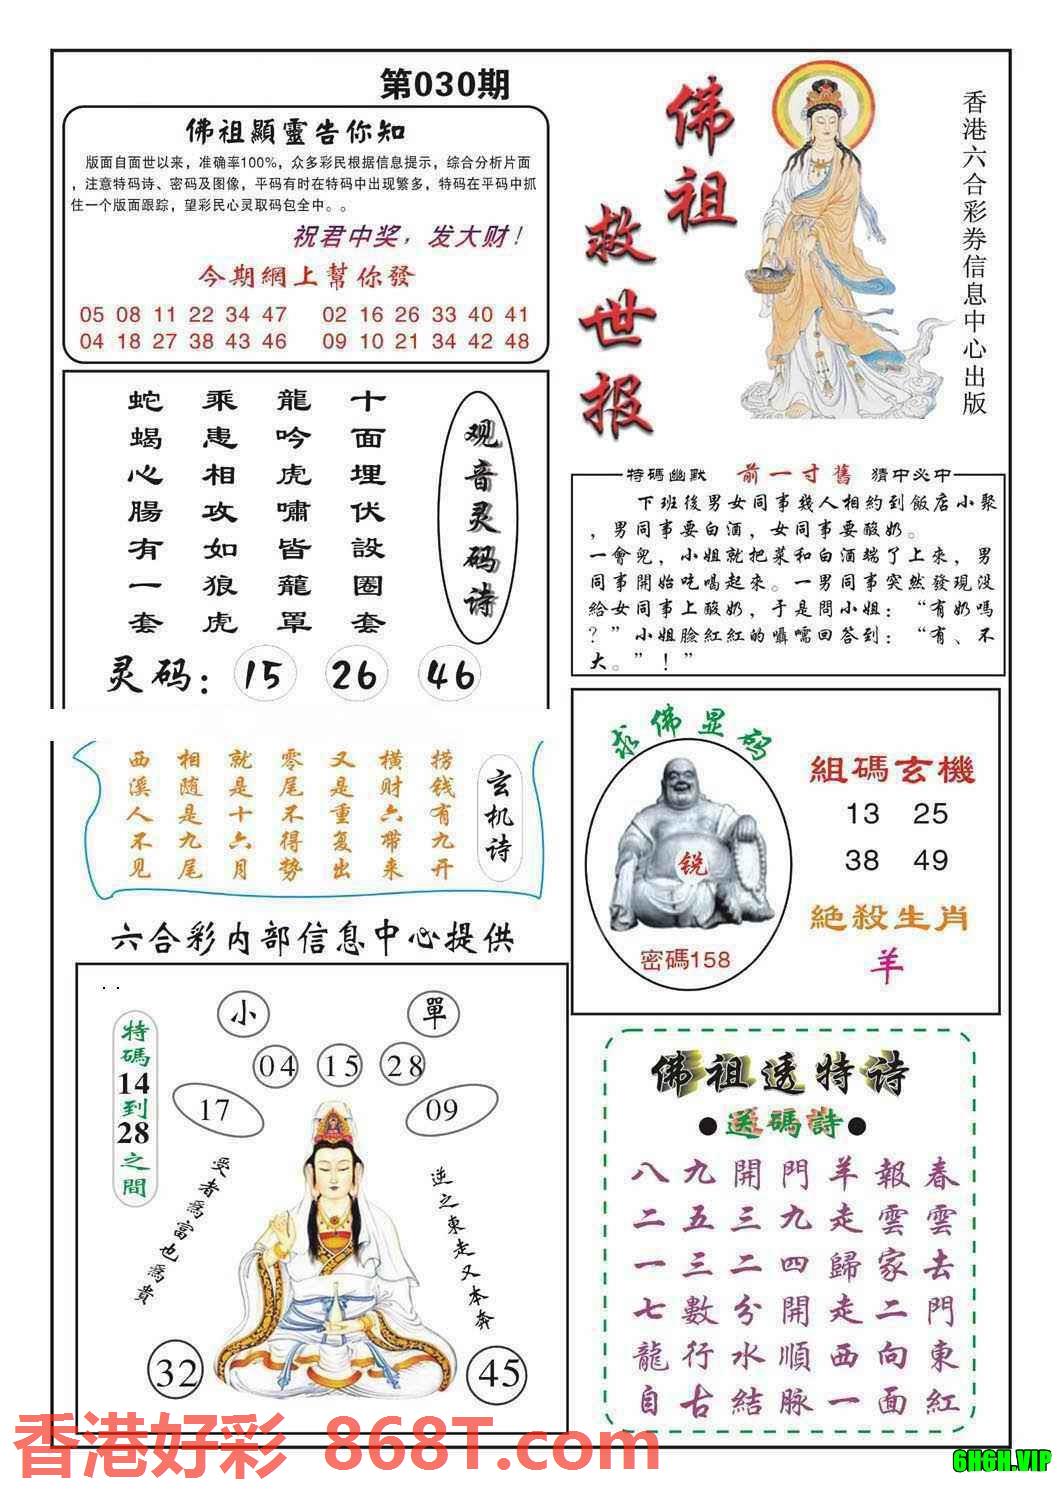 第030期
佛祖顯靈告你知
版面自面世以来，准确率100%，众多彩民根据信息提示，综合分析片面
，注意特码诗、密码及图像，平码有时在特码中出现繁多，特码在平码中抓
住一个版面跟踪，望彩民心灵取码包全中。。
祝君中奖，发大财！
今期網上幫你發
05 08 11 22 34 47 02 16 26 33 40 41
04 18 27 38 43 46 09 10 21 34 42 48
佛祖
救世报
香港六合彩券信息中心出版
观音灵码诗
十面埋伏設圈套
龍吟虎嘯皆龍罩
乘患相攻如狼虎
蛇蝎心腸有一套
灵码：15 26 46
特碼幽默 前一寸舊 猜中必中
下班後男女同事幾人相約到飯店小聚
，男同事要白酒，女同事要酸奶。
一會兒，小姐就把菜和白酒端了上來，男
同事開始吃喝起來。一男同事突然發現没
給女同事上酸奶，于是問小姐：“有奶嗎
？”小姐臉紅紅的囁嚅回答到：“有、不
大。”！”
玄机诗
捞钱有九开
横财六带来
又是重复出
零尾不得势
就是十六月
相随是九尾
西溪人不见
求佛显码
锐
密碼158
組碼玄機
13 25
38 49
絕殺生肖
羊
六合彩内部信息中心提供
. .
特碼14到28之間
小 單
04 15 28
17 09
受者爲富也爲貴
逆之東走又本奔
32 45
佛祖透特诗
●送碼詩●
八九開門羊報春
二五三九走雲雲
一三二四歸家去
七數分開走二門
龍行水順西向東
自古結脉一面紅
香港好彩 868T.com
6H6H.VIP